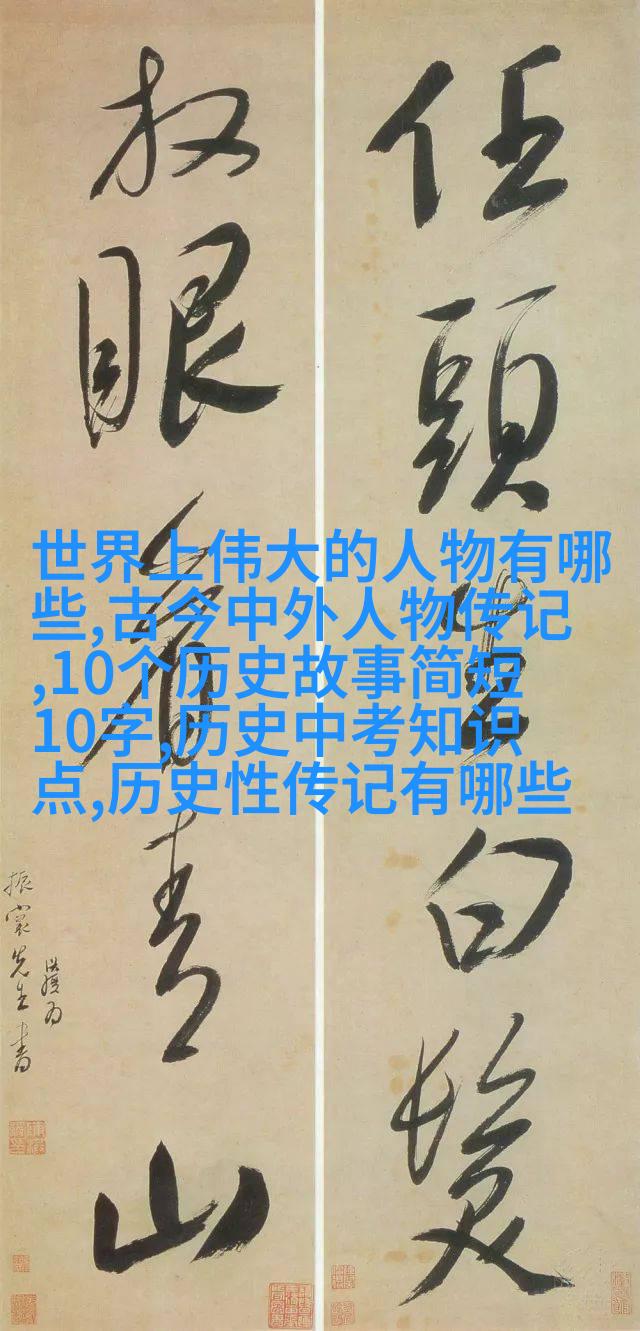 任頭生白髮
放眼看青山
洪綬為
振裳先生書
世界上伟大的人物有哪
些,古今中外人物传记
,10个历史故事简短
10字,历史中考知识
点,历史性传记有哪些